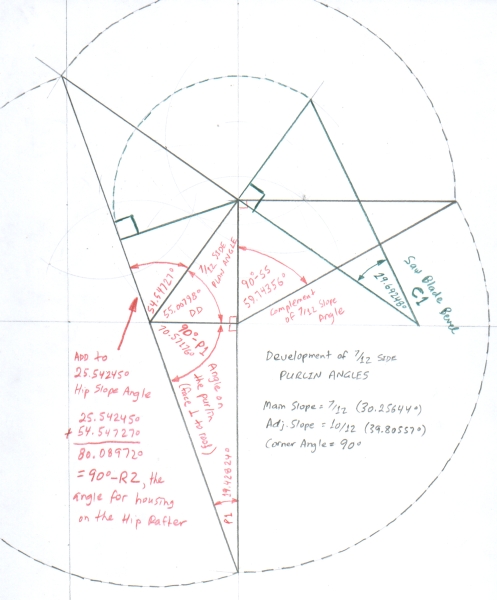 54.54727°
55.00798°
DD
7/12 SIDE
PLAN ANGLE
90°-SS
59.74356°
Complement
of 7/12 Slope
Angle
29.69248°
C1
Saw Blade Bevel
70.57176°
90°-P1
Angle on
the purlin
(face ⊥ to roof)
P1 19.42824°
ADD to
25.54245°
Hip Slope Angle
25.54245°
+ 54.54727°
80.08972°
= 90°-R2, the
angle for housing
on the Hip Rafter
Development of 7/12 SIDE
PURLIN ANGLES
Main Slope = 7/12 (30.25644°)
Adj. Slope = 10/12 (39.80557°)
Corner Angle = 90°